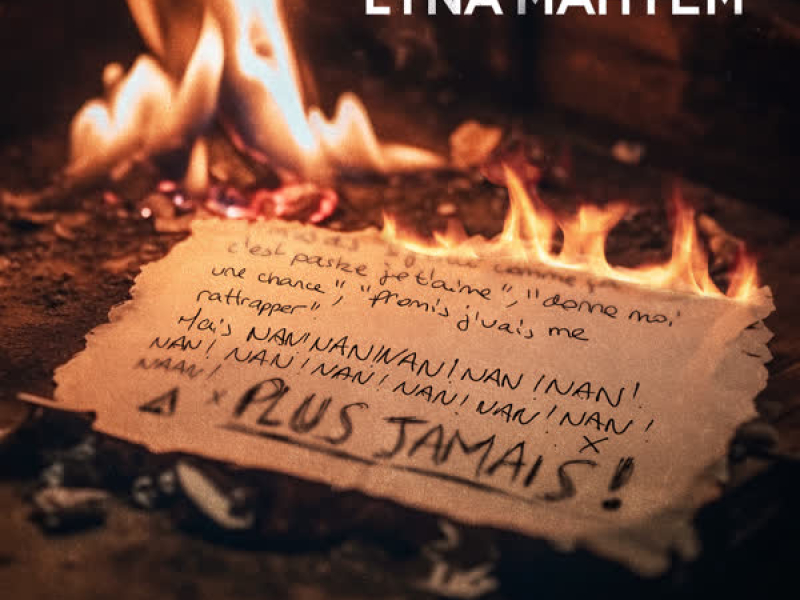 LYNA MAHYEM
comme ça
c'est parske je t'aime", "donne moi
une chance", "Promis j'vais me
rattrapper".
Mais NAN!NAN!NAN!NAN!NAN!
NAN! NAN! NAN! NAN! NAN! NAN!
NAAN! x
⚠ x PLUS JAMAIS!